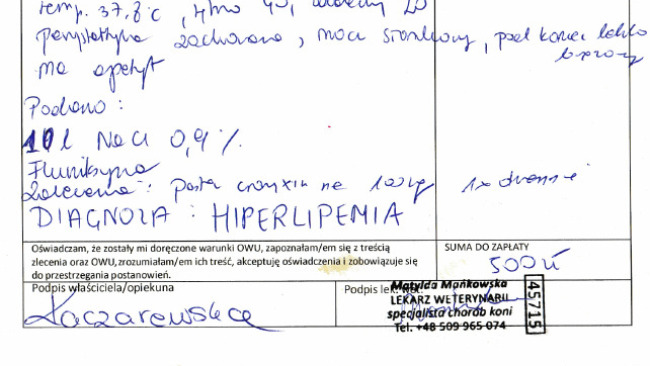 temp. 37,8°C, tętno 40, oddechy 20
perystaltyka zachowana, mocz słomkowy, pod koniec lekko
brązowy
ma apetyt
Podano:
10 l NaCl 0,9%
Fluniksyna
Zalecenia: pasta na 100kg 1x dziennie
DIAGNOZA: HIPERLIPEMIA
Oświadczam, że zostały mi doręczone warunki OWU, zapoznałam/em się z treścią
zlecenia oraz OWU, zrozumiałam/em ich treść, akceptuję oświadczenia i zobowiązuje się
do przestrzegania postanowień.
SUMA DO ZAPŁATY
500 zł
Podpis właściciela/opiekuna
Kaczarewska
Podpis lek. wet.
Matylda Mańkowska
LEKARZ WETERYNARII
specjalista chorób koni
Tel. +48 509 965 074
45715